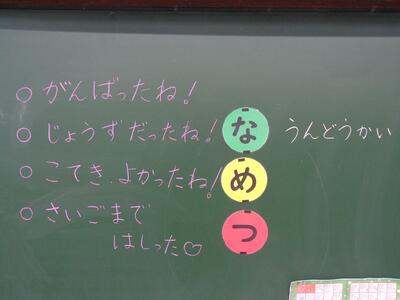 ○がんばったね!
○じょうずだったね!
○こてき、よかったね!
○さいごまで
はしった♡
な
め
つ
うんどうかい